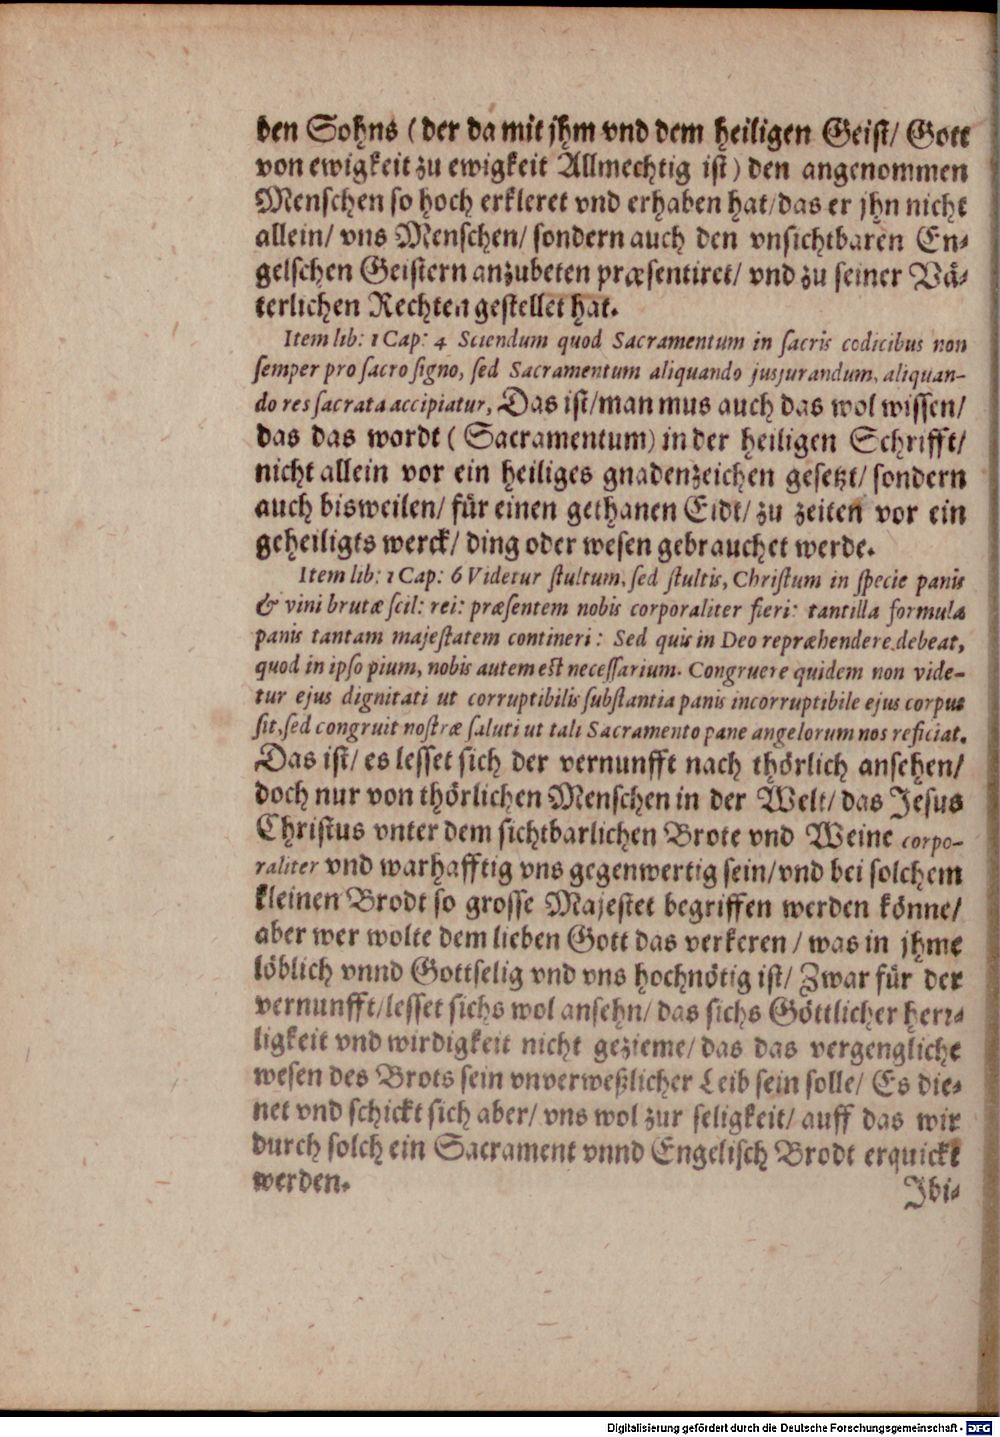 den Sohns (der da mit jhm vnd dem heiligen Geist/ Gott
von ewigkeit zu ewigkeit Allmechtig ist) den angenommen
Menschen so hoch erkleret vnd erhaben hat/das er jhn nicht
allein/ vns Menschen/ sondern auch den vnsichtbaren En-
gelschen Geistern anzubeten præsentiret/ vnd zu seiner Vä-
terlichen Rechten gestellet hat.
Item lib: 1 Cap: 4 Sciendum quod Sacramentum in sacris codicibus non
semper pro sacro signo, sed Sacramentum aliquando jusjurandum, aliquan-
do res sacrata accipiatur, Das ist/man mus auch das wol wissen/
das das wordt (Sacramentum) in der heiligen Schrifft/
nicht allein vor ein heiliges gnadenzeichen gesetzt/ sondern
auch bisweilen/ für einen gethanen Eidt/ zu zeiten vor ein
geheiligts werck/ ding oder wesen gebrauchet werde.
Item lib: 1 Cap: 6 Videtur stultum, sed stultis, Christum in specie panis
& vini brutæ scil: rei: præsentem nobis corporaliter fieri: tantilla formula
panis tantam majestatem contineri: Sed quis in Deo repræhendere debeat,
quod in ipso pium, nobis autem est necessarium. Congruere quidem non vide-
tur ejus dignitati ut corruptibilis substantia panis incorruptibile ejus corpus
sit, sed congruit nostræ saluti ut tali Sacramento pane angelorum nos reficiat.
Das ist/ es lesset sich der vernunfft nach thörlich ansehen/
doch nur von thörlichen Menschen in der Welt/ das Jesus
Christus vnter dem sichtbarlichen Brote vnd Weine corpo-
raliter vnd warhafftig vns gegenwertig sein/vnd bei solchem
kleinen Brodt so grosse Majestet begriffen werden könne/
aber wer wolte dem lieben Gott das verkeren / was in jhme
löblich vnnd Gottselig vnd vns hochnötig ist/ Zwar für der
vernunfft/lesset sichs wol ansehn/ das sichs Göttlicher herr-
ligkeit vnd wirdigkeit nicht gezieme/ das das vergengliche
wesen des Brots sein vnverweßlicher Leib sein solle/ Es die-
net vnd schickt sich aber/ vns wol zur seligkeit/ auff das wir
durch solch ein Sacrament vnnd Engelisch Brodt erquickt
werden.
Ibi-
Digitalisierung gefördert durch die Deutsche Forschungsgemeinschaft - DFG